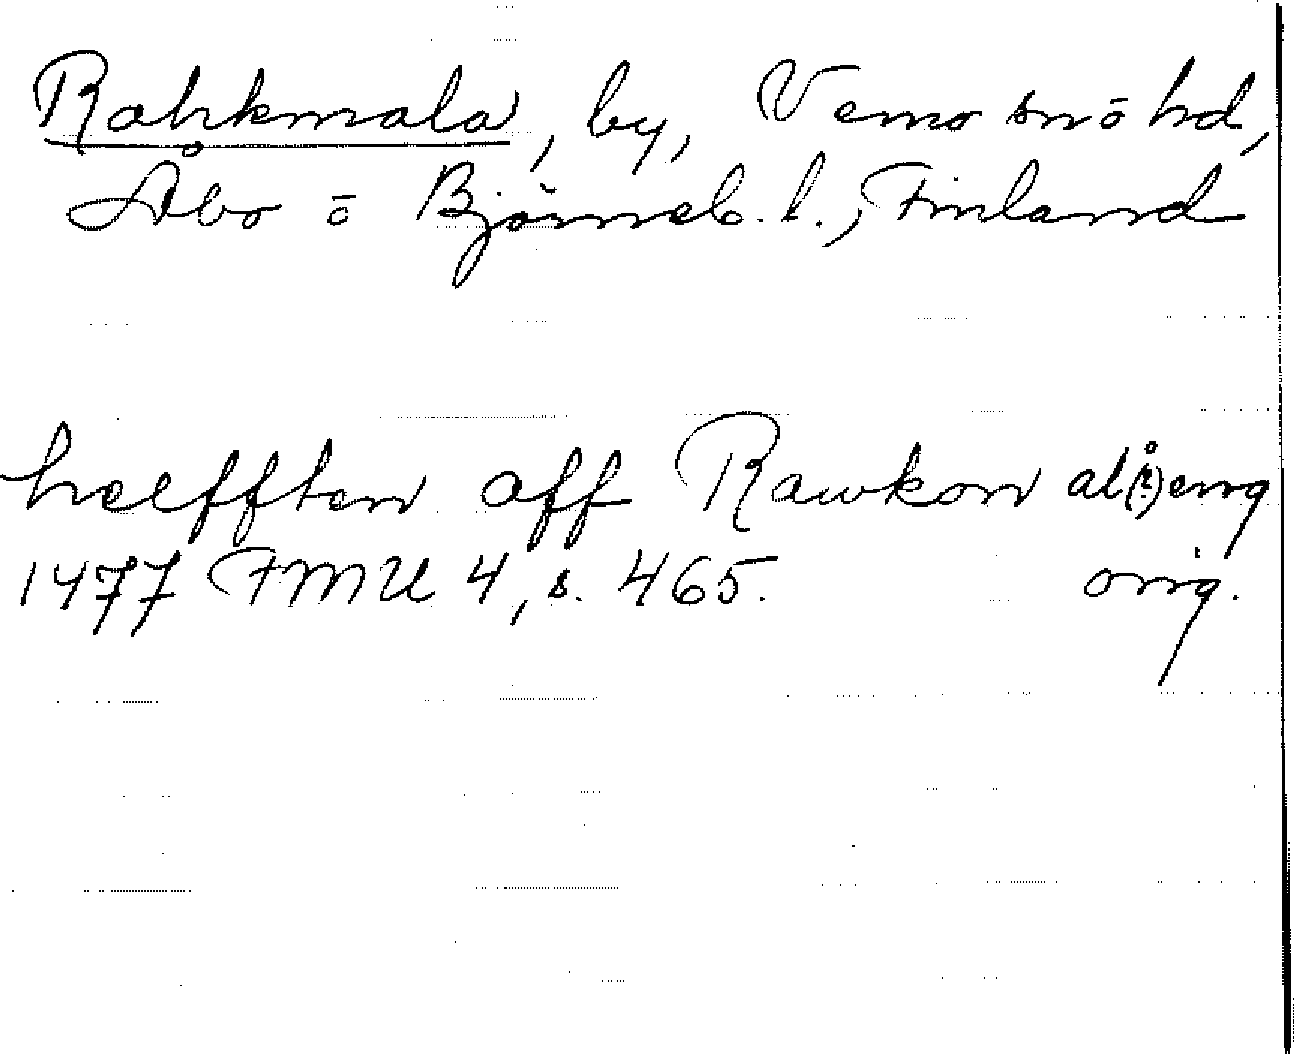 Rahkmala, by, Vemo sn ō hd,
Åbo ō Björneb. l., Finland
helfften aff Rawkon
1477 FMU 4, s. 465. orig.